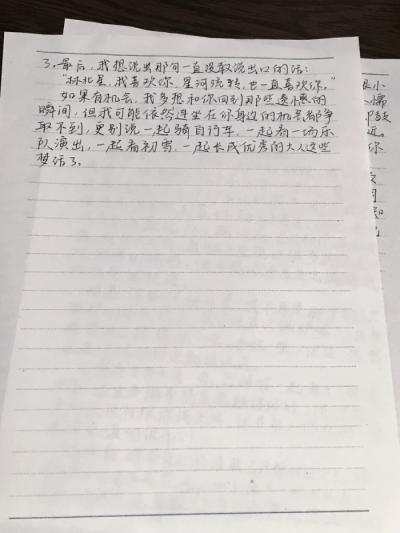 3. 最后，我想说出那句一直没敢说出口的话：
“林北星，我喜欢你，星河流转，也一直喜欢你。”
如果有机会，我多想和你回到那些遗憾的
瞬间，但我可能依然连坐在你身边的机会都争
取不到，更别说一起骑自行车，一起看一场乐
队演出，一起看初雪，一起长成优秀的大人这些
梦话了。
小
懦
近。
你
知